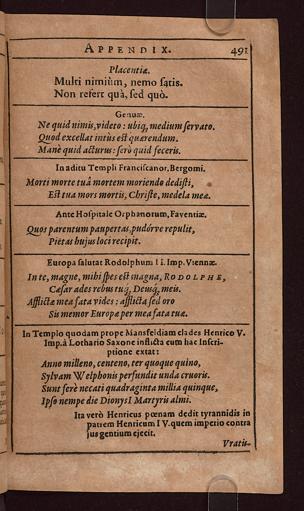 APPENDIX. 491
Placentiæ.
Multi nimiùm, nemo satis.
Non refert quà, sed quò.
Genuæ.
Ne quid nimis, videto: ubiq, medium servato.
Quod excellat intùs est quærendum.
Manè quid acturus: serò quid feceris.
In aditu Templi Franciscanor, Bergomi.
Morti morte tuâ mortem moriendo dedisti,
Est tua mors mortis, Christe, medela meæ.
Ante Hospitale Orphanorum, Faventiæ.
Quos parentum paupertas, pudórve repulit,
Pietas hujus loci recipit.
Europa salutat Rodolphum II. Imp. Viennæ.
In te, magne, mihi spes est magna, RODOLPHE,
Cæsar ades rebus tuq, Deusq, meis.
Afflictæ mea fata vides: afflicta sed oro
Sis memor Europæ per mea fata tuæ.
In Templo quodam prope Mansfeldiam clades Henrico V.
Imp. à Lothario Saxone inflicta cum hac Inscri-
ptione extat:
Anno milleno, centeno, ter quoque quino,
Sylvam Welphonis perfundit unda cruoris.
Sunt ferè necati quadraginta millia quinque,
Ipso nempe die DionysI Martyris almi.
Ita verò Henricus pœnam dedit tyrannidis in
patrem Henricum IV. quem imperio contra
jus gentium ejecit.
Vratis-